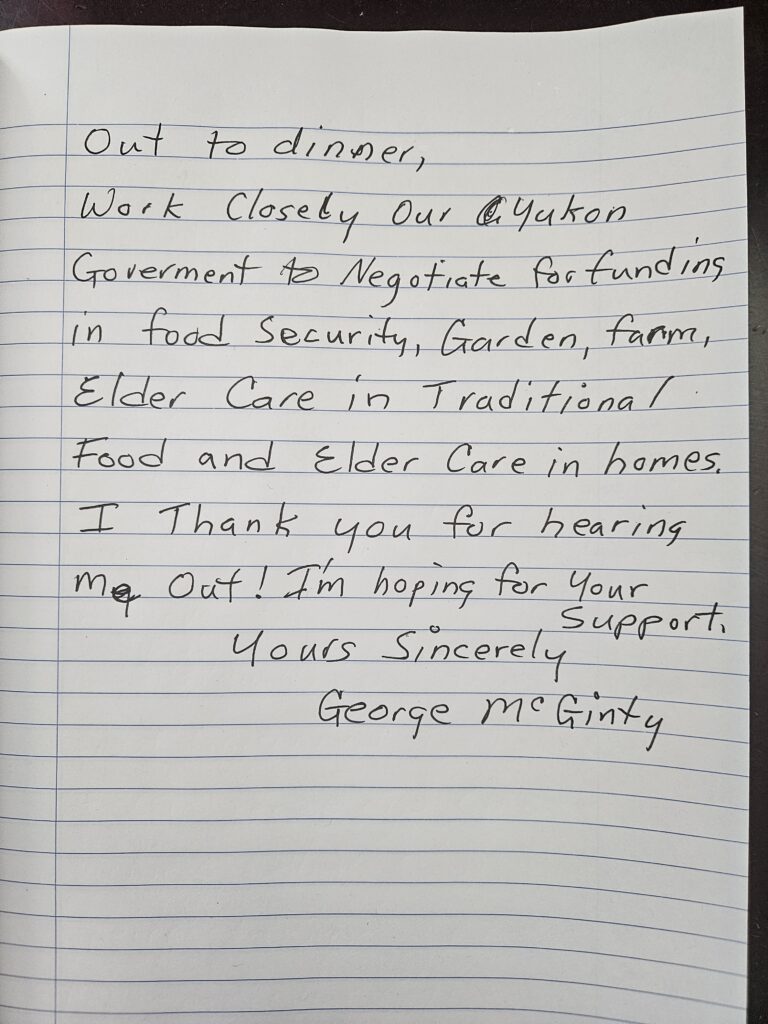 Out to dinner,
Work Closely Our Yukon
Goverment to Negotiate for funding
in food Security, Garden, farm,
Elder Care in Traditional
Food and Elder Care in homes.
I Thank you for hearing
me Out! I'm hoping for Your
Support.
Yours Sincerely
George McGinty